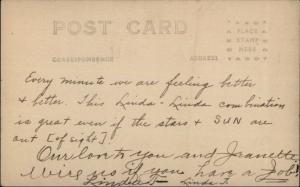 POST CARD
PLACE
STAMP
HERE
CORRESPONDENCE
ADDRESS
Every minute we are feeling better
& better. This Linda-Linda combination
is great even if the stars & SUN are
out [of sight]!
Our love to you and Jeanette
Wire us if you have a Job